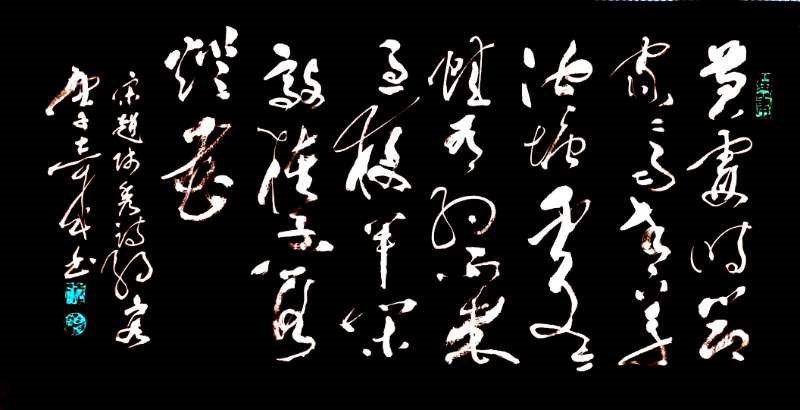 黄梅时节
家家雨青草
池塘处处蛙
有约不来
过夜半闲
敲棋子落
灯花
宋赵师秀诗约客
庚子士奇书